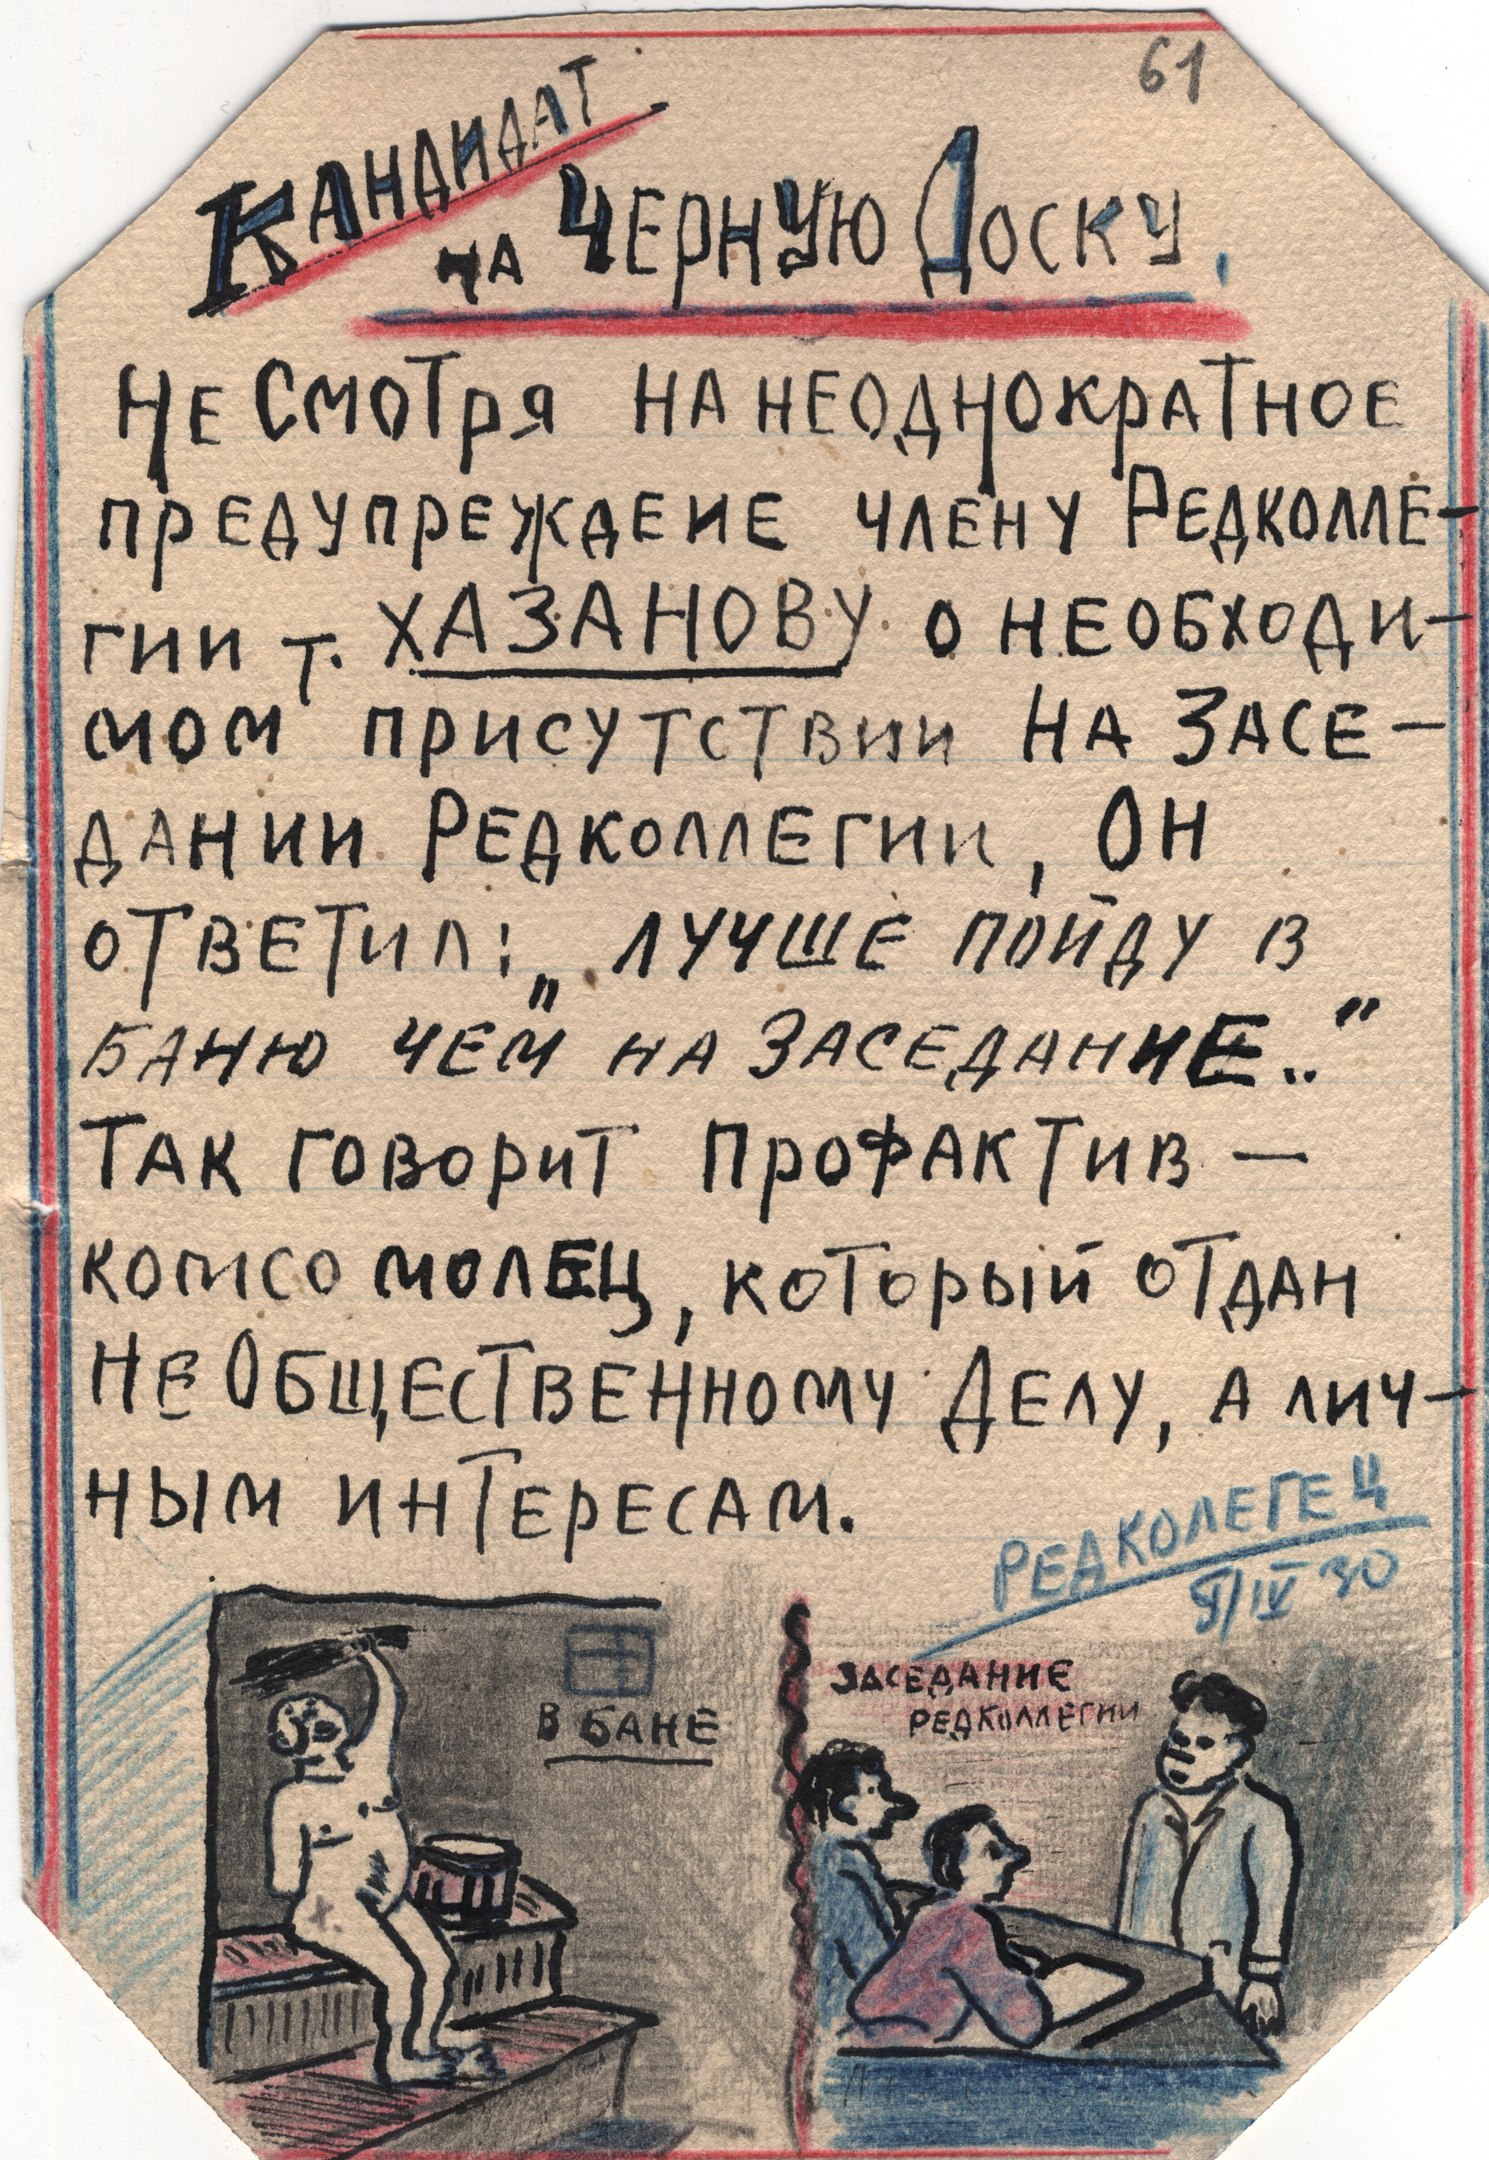 61
Кандидат
на Черную Доску.
Не Смотря на неоднократное
предупреждеие члену Редколле-
гии т. ХАЗАНОВУ о необходи-
мом присутствии на засе-
дании Редколлегии, Он
ответил: „лучше пойду в
баню чем на заседание.."
Так говорит профактив —
комсомолец, который отдан
не Общественному Делу, а лич-
ным интересам.
РЕДКОЛЕГЕЦ
9/IV 30
В БАНЕ
ЗАСЕДАНИЕ
РЕДКОЛЛЕГИИ